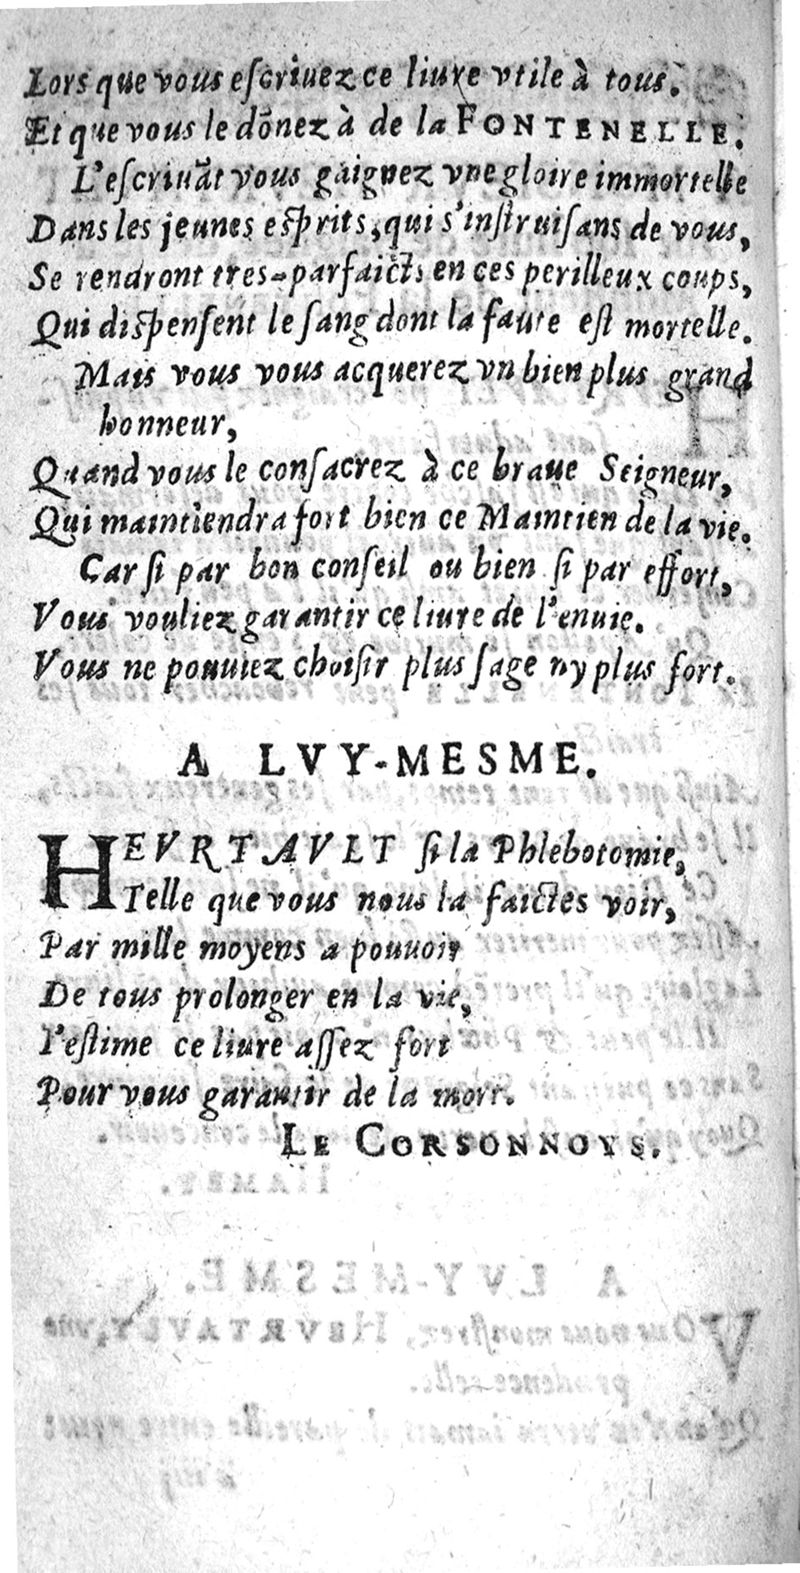 Lors que vous eſcriuez ce liure vtile à tous.
Et que vous le dõnez à de la FONTENELLE.
L'eſcriuãt vous gaignez vne gloire immortelle
Dans les jeunes eſprits, qui s'inſtruiſans de vous,
Se rendront tres-parfaicts en ces perilleux coups,
Qui diſpenſent le ſang dont la faute eſt mortelle.
Mais vous vous acquerez vn bien plus grand
honneur,
Quand vous le conſacrez à ce braue Seigneur,
Qui maintiendra fort bien ce Maintien de la vie.
Car ſi par bon conſeil ou bien ſi par effort,
Vous vouliez garantir ce liure de l'enuie.
Vous ne pouuiez choiſir plus ſage ny plus fort.
A LVY-MESME.
HEVRTAVLT ſi la Phlebotomie,
Telle que vous nous la faictes voir,
Par mille moyens a pouuoir
De tous prolonger en la vie,
I'eſtime ce liure aſſez fort
Pour vous garantir de la mort.
LE CORSONNOYS.